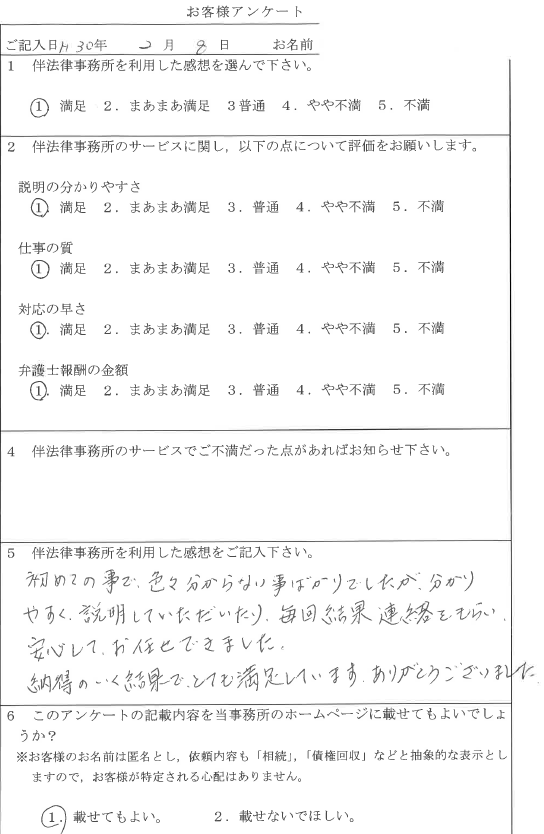 お客様アンケート
ご記入日H30年 2月 8日 お名前
1 伴法律事務所を利用した感想を選んで下さい。
①満足 2．まあまあ満足 3普通 4．やや不満 5．不満
2 伴法律事務所のサービスに関し，以下の点について評価をお願いします。
説明の分かりやすさ
①．満足 2．まあまあ満足 3．普通 4．やや不満 5．不満
仕事の質
①満足 2．まあまあ満足 3．普通 4．やや不満 5．不満
対応の早さ
①．満足 2．まあまあ満足 3．普通 4．やや不満 5．不満
弁護士報酬の金額
①．満足 2．まあまあ満足 3．普通 4．やや不満 5．不満
4 伴法律事務所のサービスでご不満だった点があればお知らせ下さい。
5 伴法律事務所を利用した感想をご記入下さい。
初めての事で、色々分からない事ばかりでしたが、分かり
やすく、説明していただいたり、毎回結果連絡をもらい、
安心して、お任せできました。
納得のいく結果で、とても満足しています。ありがとうございました。
6 このアンケートの記載内容を当事務所のホームページに載せてもよいでしょ
うか？
※お客様のお名前は匿名とし，依頼内容も「相続」，「債権回収」などと抽象的な表示とし
ますので，お客様が特定される心配はありません。
①．載せてもよい。 2．載せないでほしい。